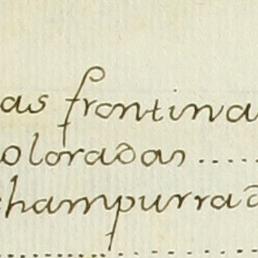 as frontina
oloradas .....
champurrad